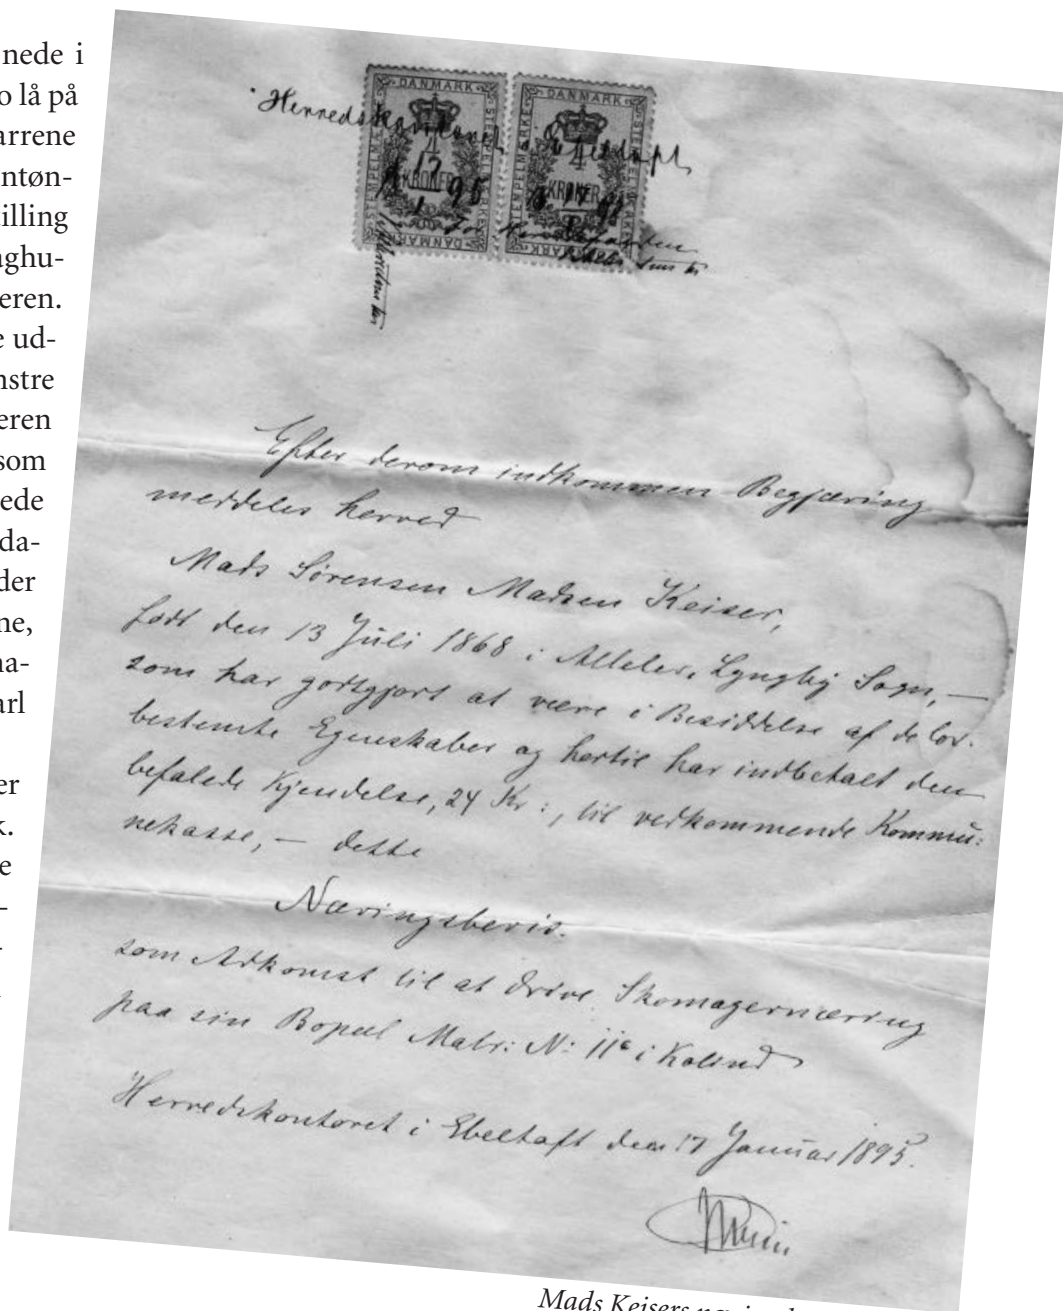 nede i
o lå på
arrene
ntøn-
illing
aghu-
eren.
e ud-
nstre
eren
som
ede
da-
der
ne,
na-
arl
er
k.
e
-
DANMARK
STEMPELMÆRKE
4
KRONER
DANMARK
DANMARK
STEMPELMÆRKE
4
KRONER
Herredskontoret i Ebeltoft
17
1 95
For
Efter derom indkommen Begjæring
meddeles herved
Mads Sørensen Madsen Keiser,
født den 13 Juli 1868 i Allelev, Lyngby Sogn, —
som har godtgjort at være i Besiddelse af de lov-
bestemte Egenskaber og hertil har indbetalt den
befalede Kjendelse, 24 Kr:, til vedkommende Kommu:
nekasse, — dette
Næringsbevis.
som Adkomst til at drive Skomagernæring
paa sin Bopæl Matr: N: 11c i Kolind
Herredskontoret i Ebeltoft den 17 Januar 1895.
Mads Keisers